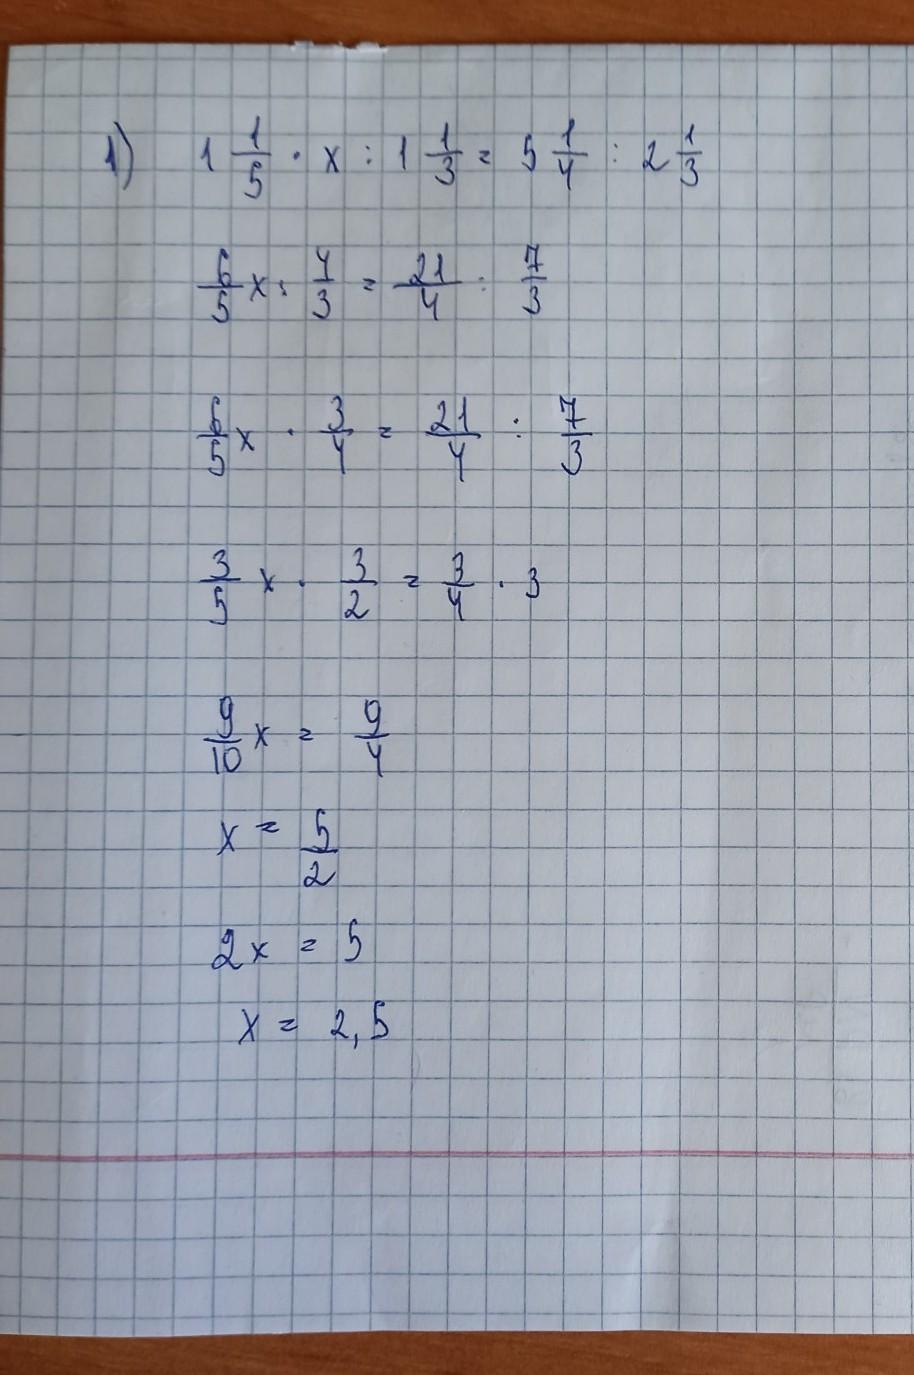 1) 1 1/5 · x : 1 1/3 = 5 1/4 : 2 1/3
6/5 x : 4/3 = 21/4 : 7/3
6/5 x · 3/4 = 21/4 : 7/3
3/5 x · 3/2 = 3/4 · 3
9/10 x = 9/4
x = 5/2
2x = 5
x = 2,5